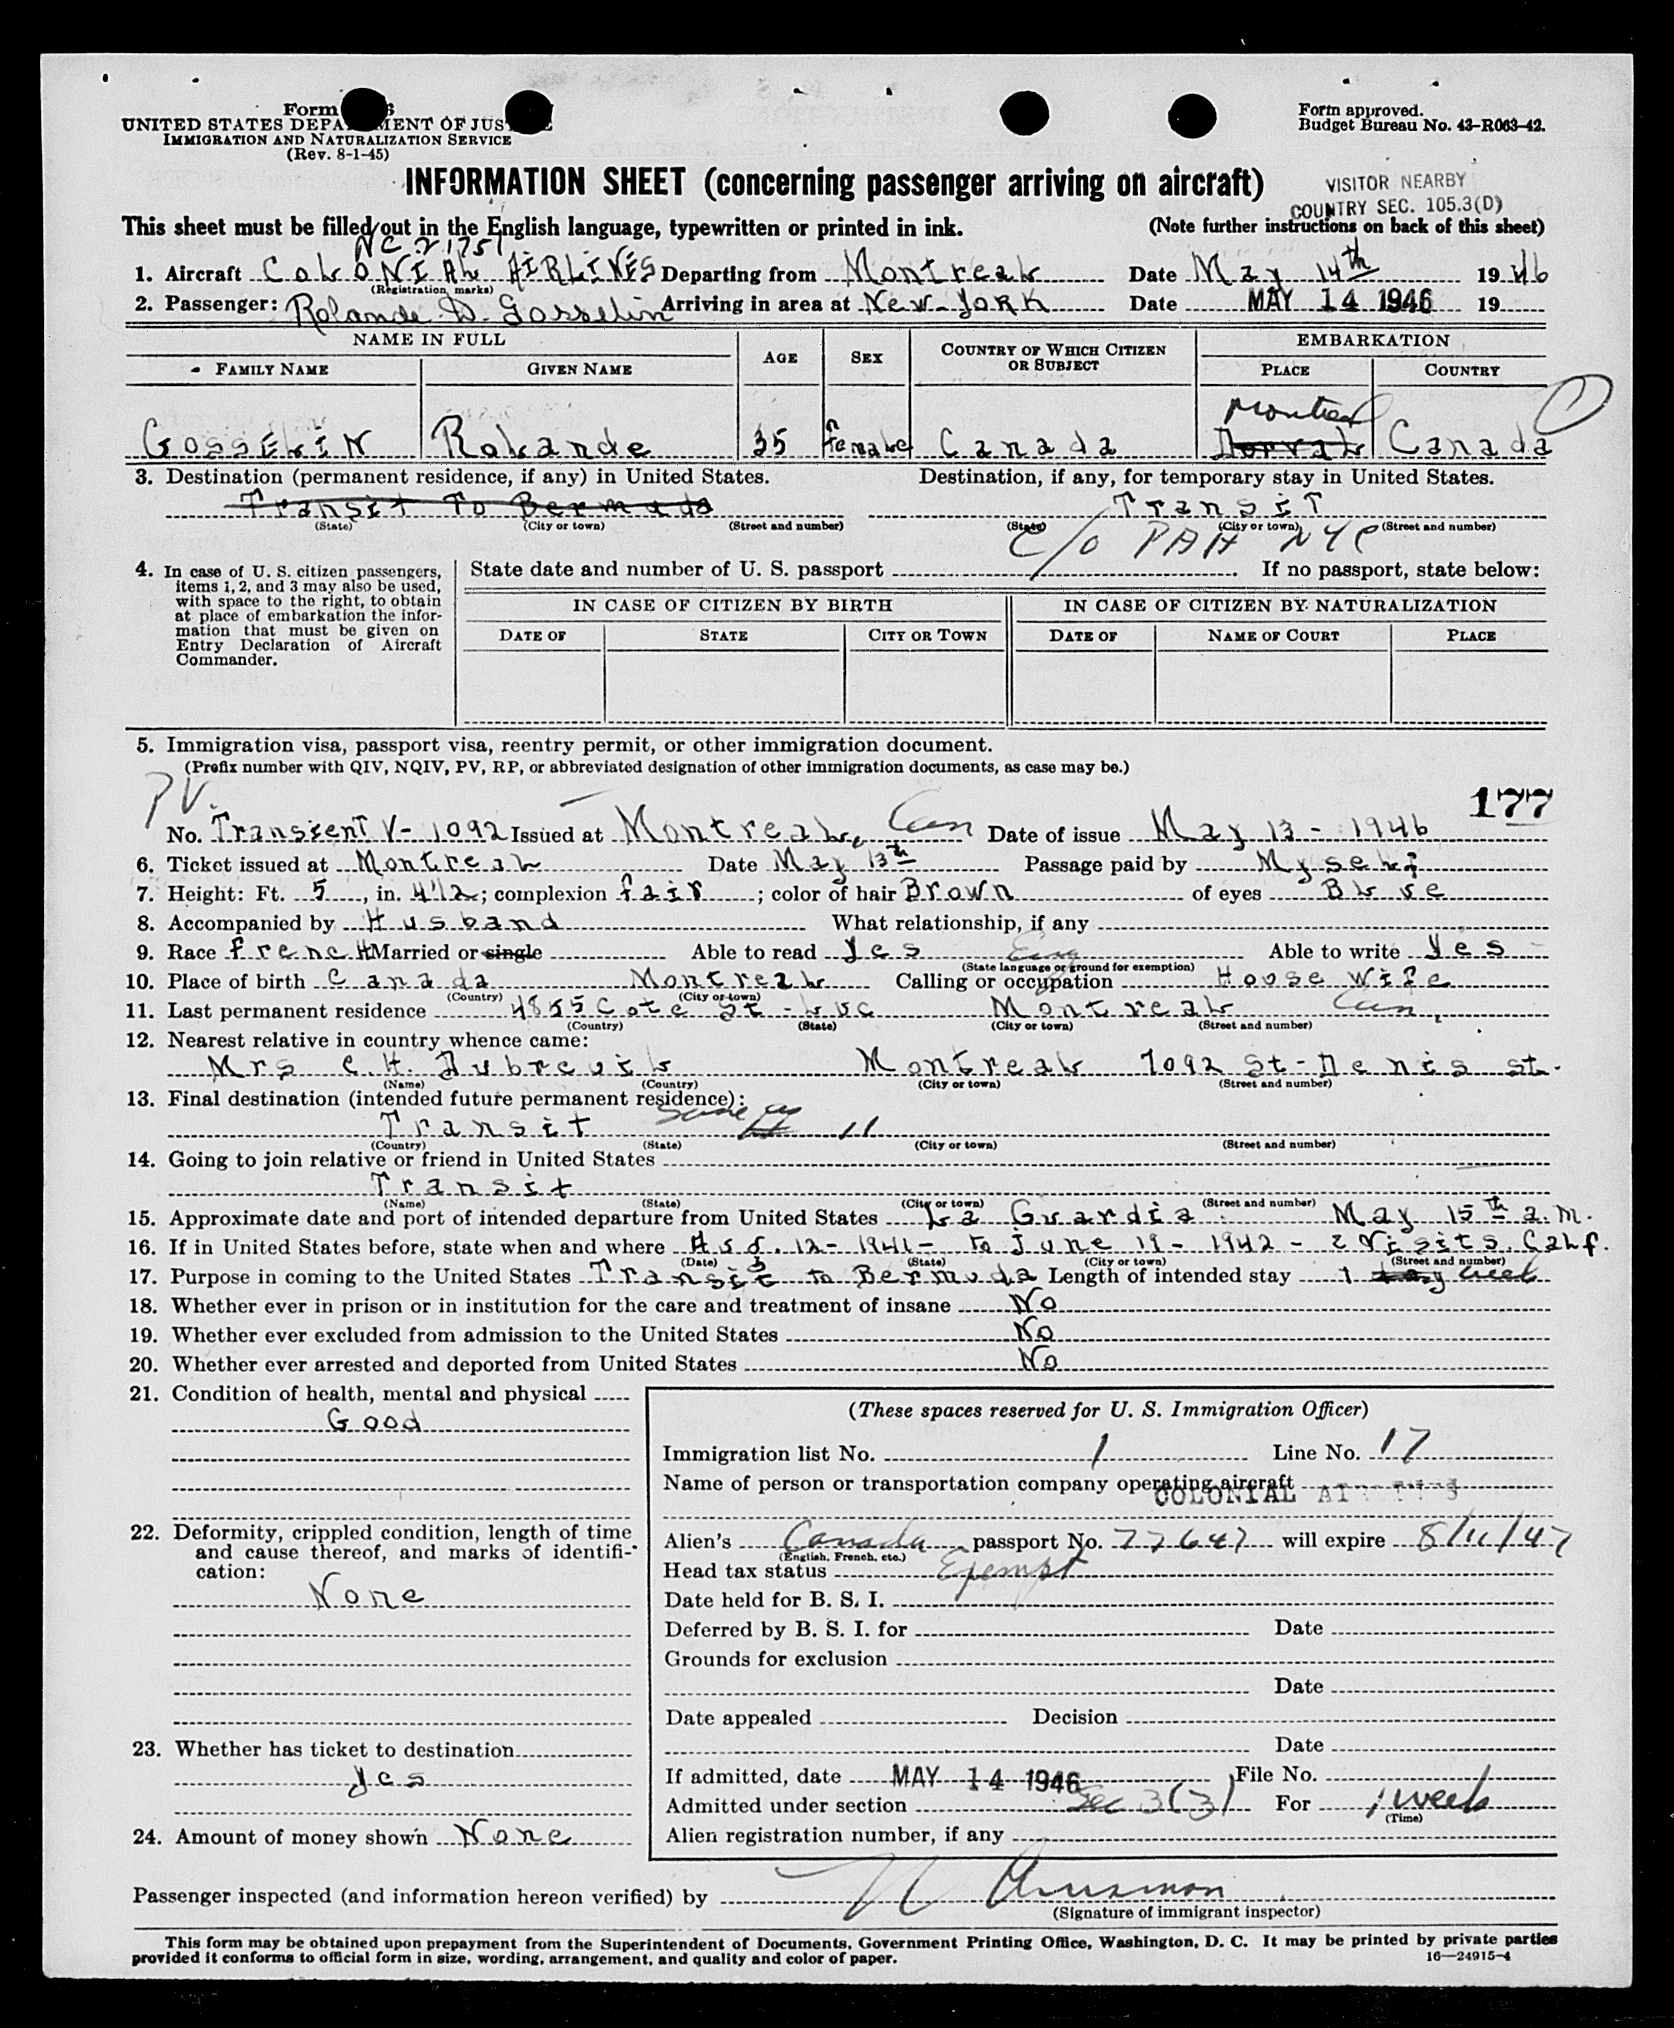 Form
UNITED STATES DEPARTMENT OF JUSTICE
IMMIGRATION AND NATURALIZATION SERVICE
(Rev. 8-1-45)
Form approved.
Budget Bureau No. 43-R063-42.
INFORMATION SHEET (concerning passenger arriving on aircraft)
VISITOR NEARBY
COUNTRY SEC. 105.3(D)
This sheet must be filled out in the English language, typewritten or printed in ink. (Note further instructions on back of this sheet)
NC 21751
1. Aircraft COLONIAL AIRLINES Departing from Montreal Date May 14th 1946
(Registration marks)
2. Passenger: Rolande D. Gosselin Arriving in area at New-York Date MAY 14 1946 19
NAME IN FULL AGE SEX COUNTRY OF WHICH CITIZEN OR SUBJECT EMBARKATION
FAMILY NAME GIVEN NAME PLACE COUNTRY
Montreal
GOSSELIN Rolande 35 female Canada Dorval Canada
3. Destination (permanent residence, if any) in United States. Destination, if any, for temporary stay in United States.
Transit To Bermuda Transit
(State) (City or town) (Street and number) (State) (City or town) (Street and number)
C/o PAA NYC
4. In case of U. S. citizen passengers, items 1, 2, and 3 may also be used, with space to the right, to obtain at place of embarkation the information that must be given on Entry Declaration of Aircraft Commander.
State date and number of U. S. passport If no passport, state below:
IN CASE OF CITIZEN BY BIRTH IN CASE OF CITIZEN BY NATURALIZATION
DATE OF STATE CITY OR TOWN DATE OF NAME OF COURT PLACE
5. Immigration visa, passport visa, reentry permit, or other immigration document.
(Prefix number with QIV, NQIV, PV, RP, or abbreviated designation of other immigration documents, as case may be.)
PV. 177
No. Transient V- 1092 Issued at Montreal, Can Date of issue May 13 - 1946
6. Ticket issued at Montreal Date May 13th Passage paid by Myself
7. Height: Ft. 5, in. 4 1/2; complexion fair; color of hair Brown of eyes Blue
8. Accompanied by Husband What relationship, if any
9. Race frencH Married or single Able to read yes Eng Able to write yes
(State language or ground for exemption)
10. Place of birth Canada Montreal Calling or occupation House Wife
(Country) (City or town)
11. Last permanent residence 4855 Cote St - Luc Montreal Can.
(Country) (State) (City or town) (Street and number)
12. Nearest relative in country whence came:
Mrs C.H. Dubreuil Montreal 7092 St-Denis St.
(Name) (Country) (City or town) (Street and number)
13. Final destination (intended future permanent residence):
Transit same as 11
(Country) (State) (City or town) (Street and number)
14. Going to join relative or friend in United States
Transit
(Name) (State) (City or town) (Street and number)
15. Approximate date and port of intended departure from United States La Guardia May 15th a.m.
16. If in United States before, state when and where Aug. 12 - 1941 - to June 19 - 1942 - 2 Visits, Calf.
(Date) (State) (City or town) (Street and number)
17. Purpose in coming to the United States Transit to Bermuda Length of intended stay 1 day week
18. Whether ever in prison or in institution for the care and treatment of insane No
19. Whether ever excluded from admission to the United States No
20. Whether ever arrested and deported from United States No
21. Condition of health, mental and physical
Good
22. Deformity, crippled condition, length of time and cause thereof, and marks of identification:
None
23. Whether has ticket to destination
yes
24. Amount of money shown None
(These spaces reserved for U. S. Immigration Officer)
Immigration list No. 1 Line No. 17
Name of person or transportation company operating aircraft
COLONIAL AIRLINES
Alien's Canada passport No. 77647 will expire 8/11/47
(English, French, etc.)
Head tax status Exempt
Date held for B. S. I.
Deferred by B. S. I. for Date
Grounds for exclusion
Date
Date appealed Decision
Date
If admitted, date MAY 14 1946 File No.
Admitted under section Sec 3(3) For 1 week
(Time)
Alien registration number, if any
Passenger inspected (and information hereon verified) by
(Signature of immigrant inspector)
This form may be obtained upon prepayment from the Superintendent of Documents, Government Printing Office, Washington, D. C. It may be printed by private parties
provided it conforms to official form in size, wording, arrangement, and quality and color of paper. 16—24915-4